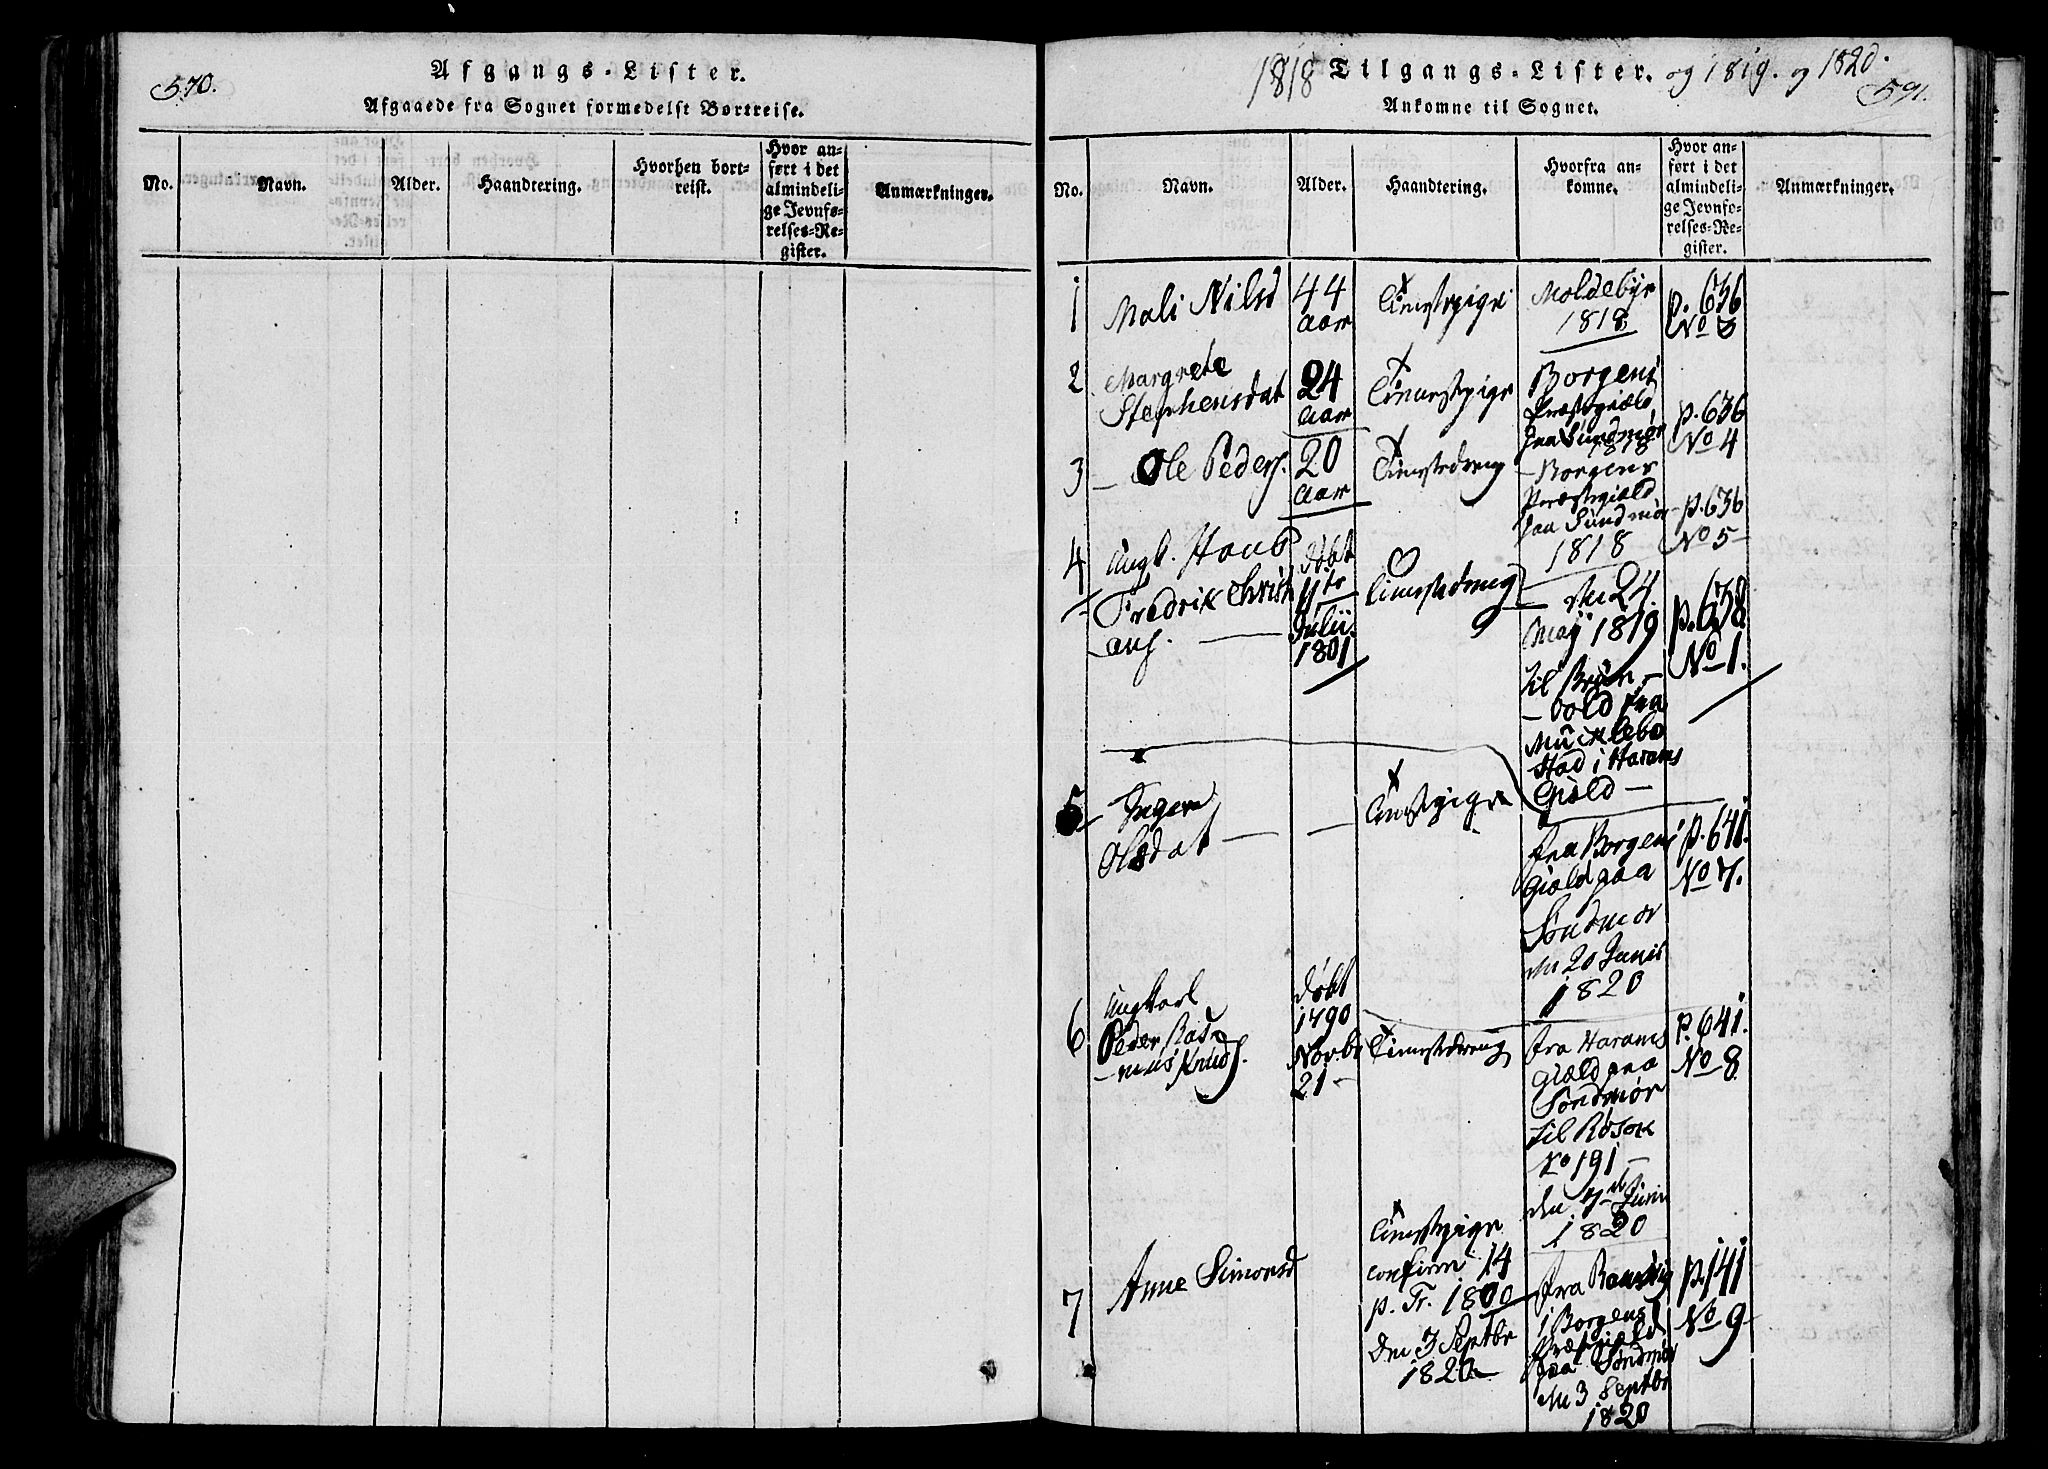 570.
Afgangs-Lister.
Afgaaede fra Sognet formedelst Bortreise.
No.
Navn.
Alder.
Haandtering.
Hvorhen bort-
reist.
Hvor an-
ført i det
almindeli-
ge Jevnfø-
relses-Re-
gister.
Anmærkninger.
1818 Tilgangs-Lister. og 1819. og 1820.
591.
Ankomne til Sognet.
No.
Navn.
Alder.
Haandtering.
Hvorfra an-
komne.
Hvor an-
ført i det
almindeli-
ge Jevnfø-
relses-Re-
gister.
Anmærkninger.
1
Mali Nilsd
44
aar
Tienestpige
Moldebye
1818
p. 636
No 3
2
Margrete
Stephensdat
24
aar
Tienestpige
Borgens
Præstegiæld
paa Sundmør
1818
p. 636
No 4
3
Ole Peders.
20
aar
Tienestedreng
Borgens
Præstegiæld
paa Sundmør
1818
p. 636
No 5
4
Ungk.
Fredrik Christi
ans.
døbt
Julii
1801
Tienestedreng
den 24
Maij 1819
til
vold fra
Myklebo
stad i Harams
Giæld
p. 638.
No 1.
5
Ingere
Olsdat
Tienestpige
fra Borgens
Giæld paa
Søndmør
den 20 Junii
1820
p. 641.
No 7.
6
Ungkarl
Peder Ras
mus Knuds.
døbt
1790
Novbr
21
Tienestedreng
fra Harams
Giæld paa
Søndmør
til Røsok
No 191
den 7de Junii
1820
p. 641.
No 8.
7
Anne Simonsd
Tienestpige
confirm 14
p. Tr. 1800
den 3 Septbr
1820
fra
i Borgens
Præstegiæld
paa Søndmør
den 3 Septbr
1820
p. 141
No 9